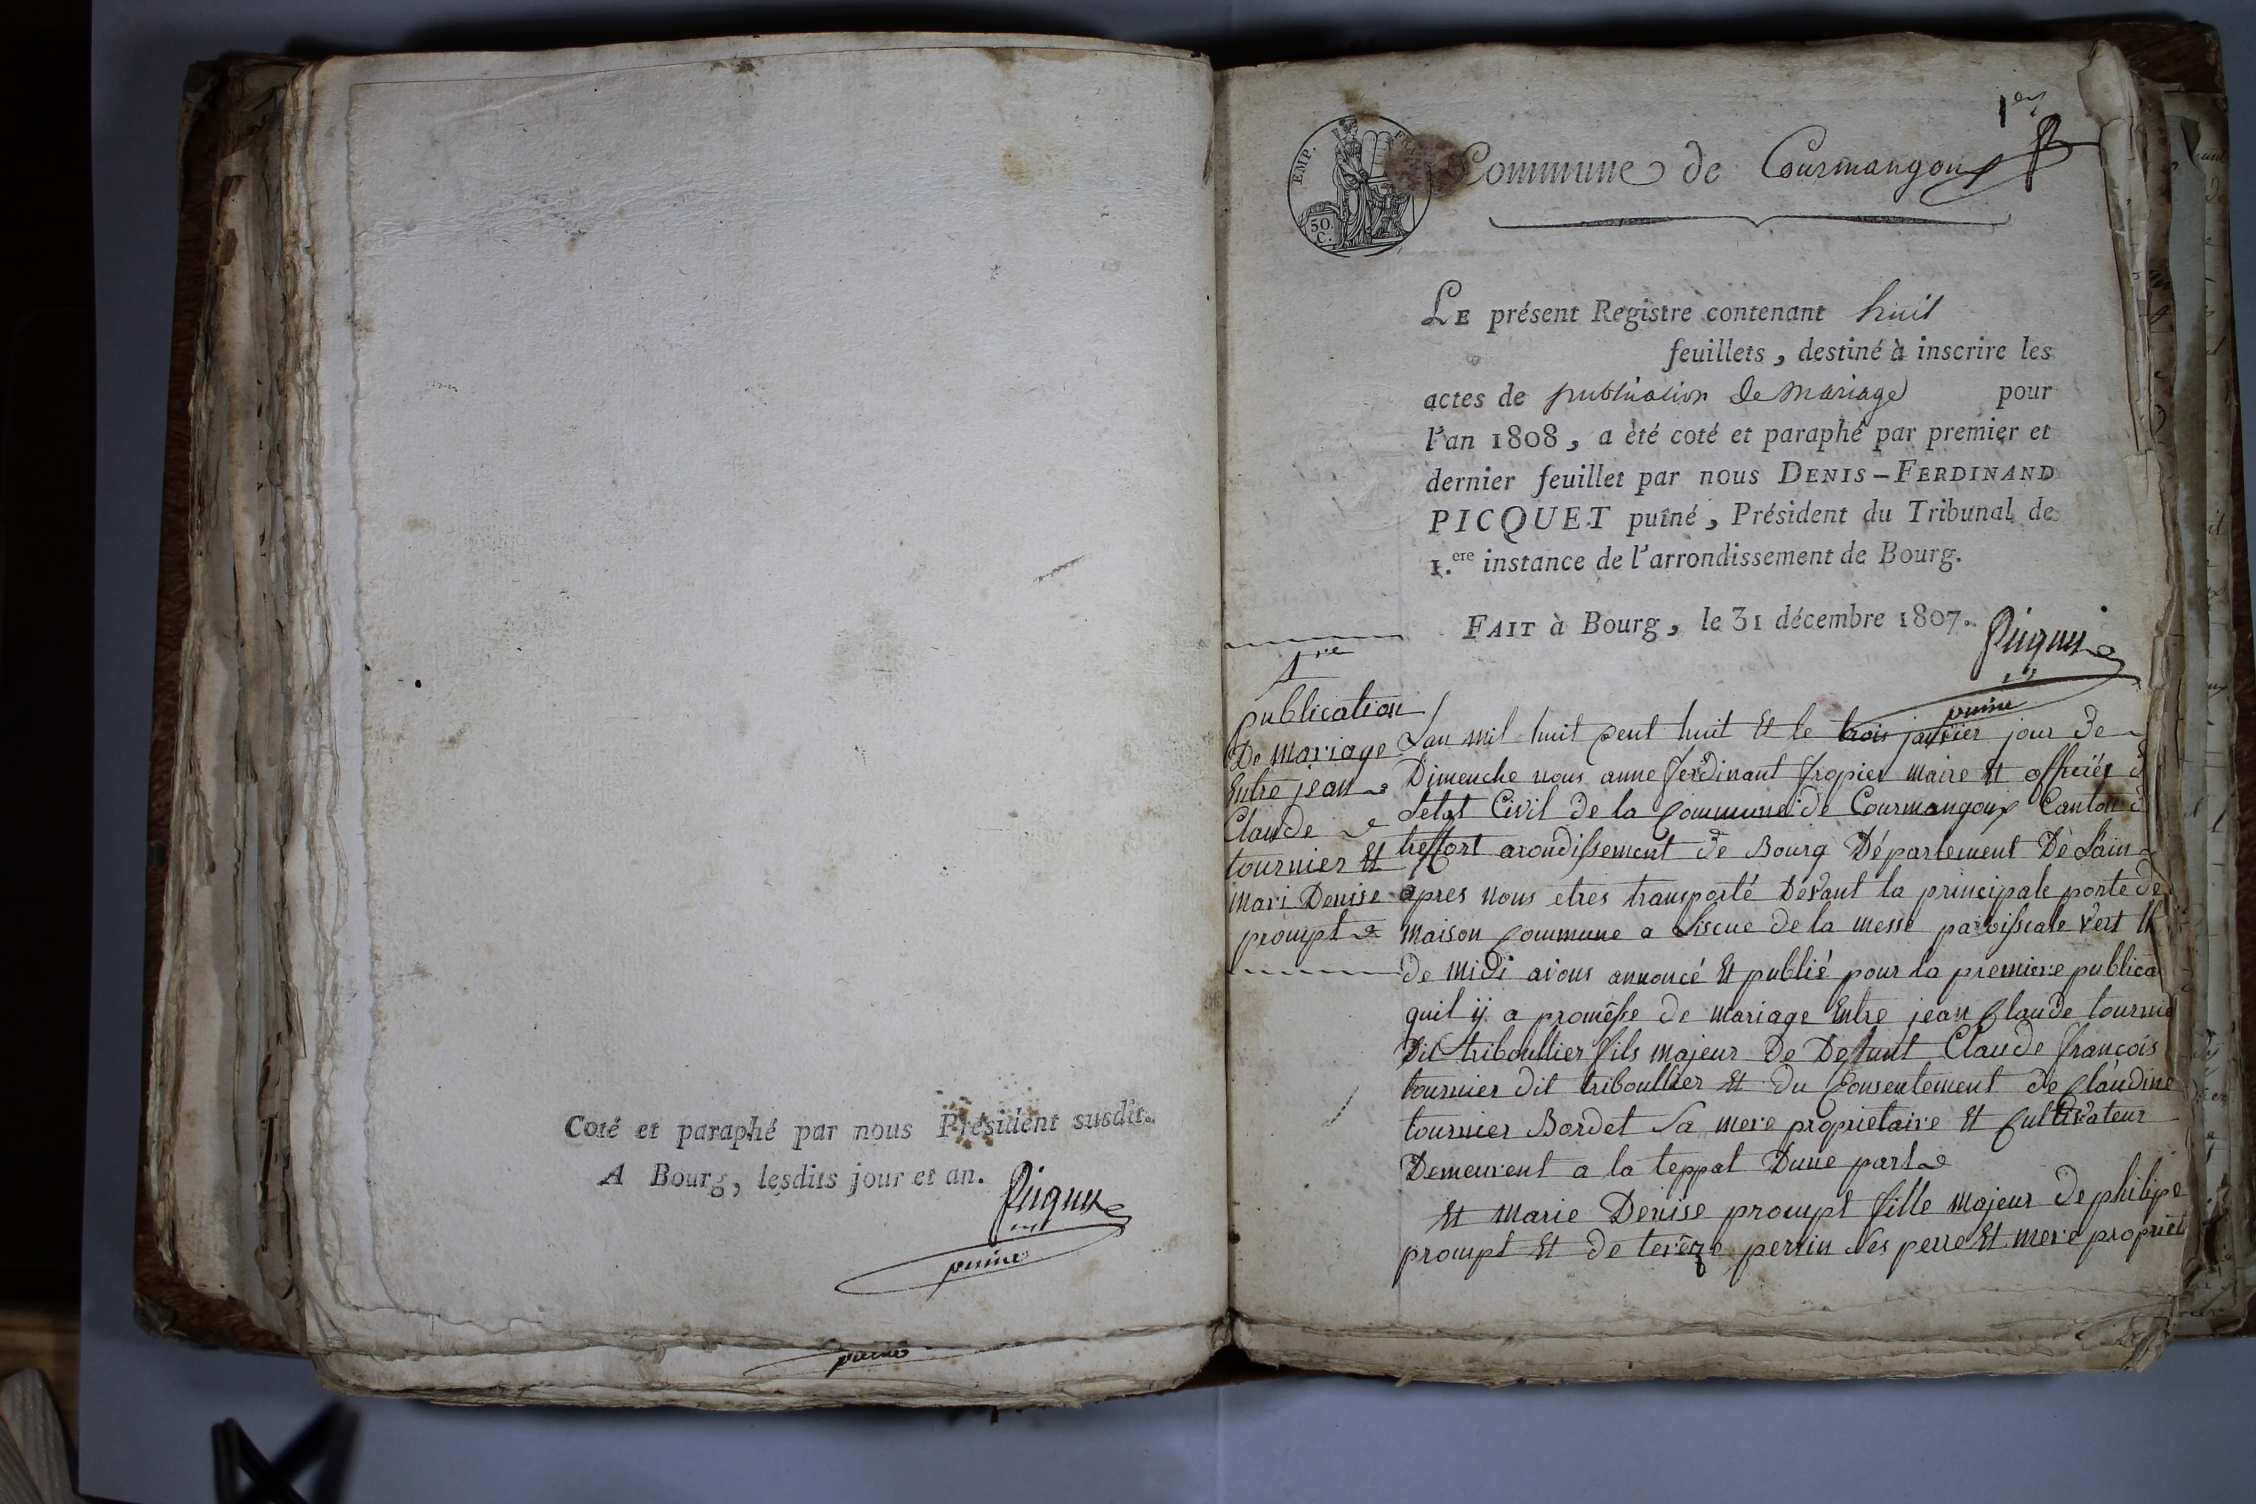 Coté et paraphé par nous Président susdit.
A Bourg, lesdits jour et an.
Picquet
puiné
puiné
1er
EMP.
50
C.
Commune de Courmangoux
LE présent Registre contenant huit
feuillets, destiné à inscrire les
actes de publication de mariage pour
l'an 1808, a été coté et paraphé par premier et
dernier feuillet par nous DENIS-FERDINAND
PICQUET puîné, Président du Tribunal de
1.ere instance de l'arrondissement de Bourg.
FAIT à Bourg, le 31 décembre 1807.
Picquet
puiné
1re
publication
De mariage
Entre jean
Claude
tournier Et
mari Denise
prompt
Lan mil huit Cent huit Et le trois janvier jour de
Dimenche nous anne ferdinant fropier maire Et officier d
Letat Civil de la Commune de Courmangoux Canton d
treffort arondissement de Bourg Département De Lain
apres nous etres transporté Devant la principale porte de
maison Commune a Liscue de la messe paroissale vert
de midi avons annoncé Et publié pour la premiere publica
quil ij a promêsse de mariage Entre jean Claude tournie
Dit triboullier fils majeur De Defunt Claude françois
tournier dit triboullier Et du Consentement de Claudine
tournier Bordet Sa mere proprietaire Et Cultivateur
Demeurent a la teppat Dune part
Et marie Denise prompt fille majeur de philipe
prompt Et de terêze perrin Ses perre Et mere propriet